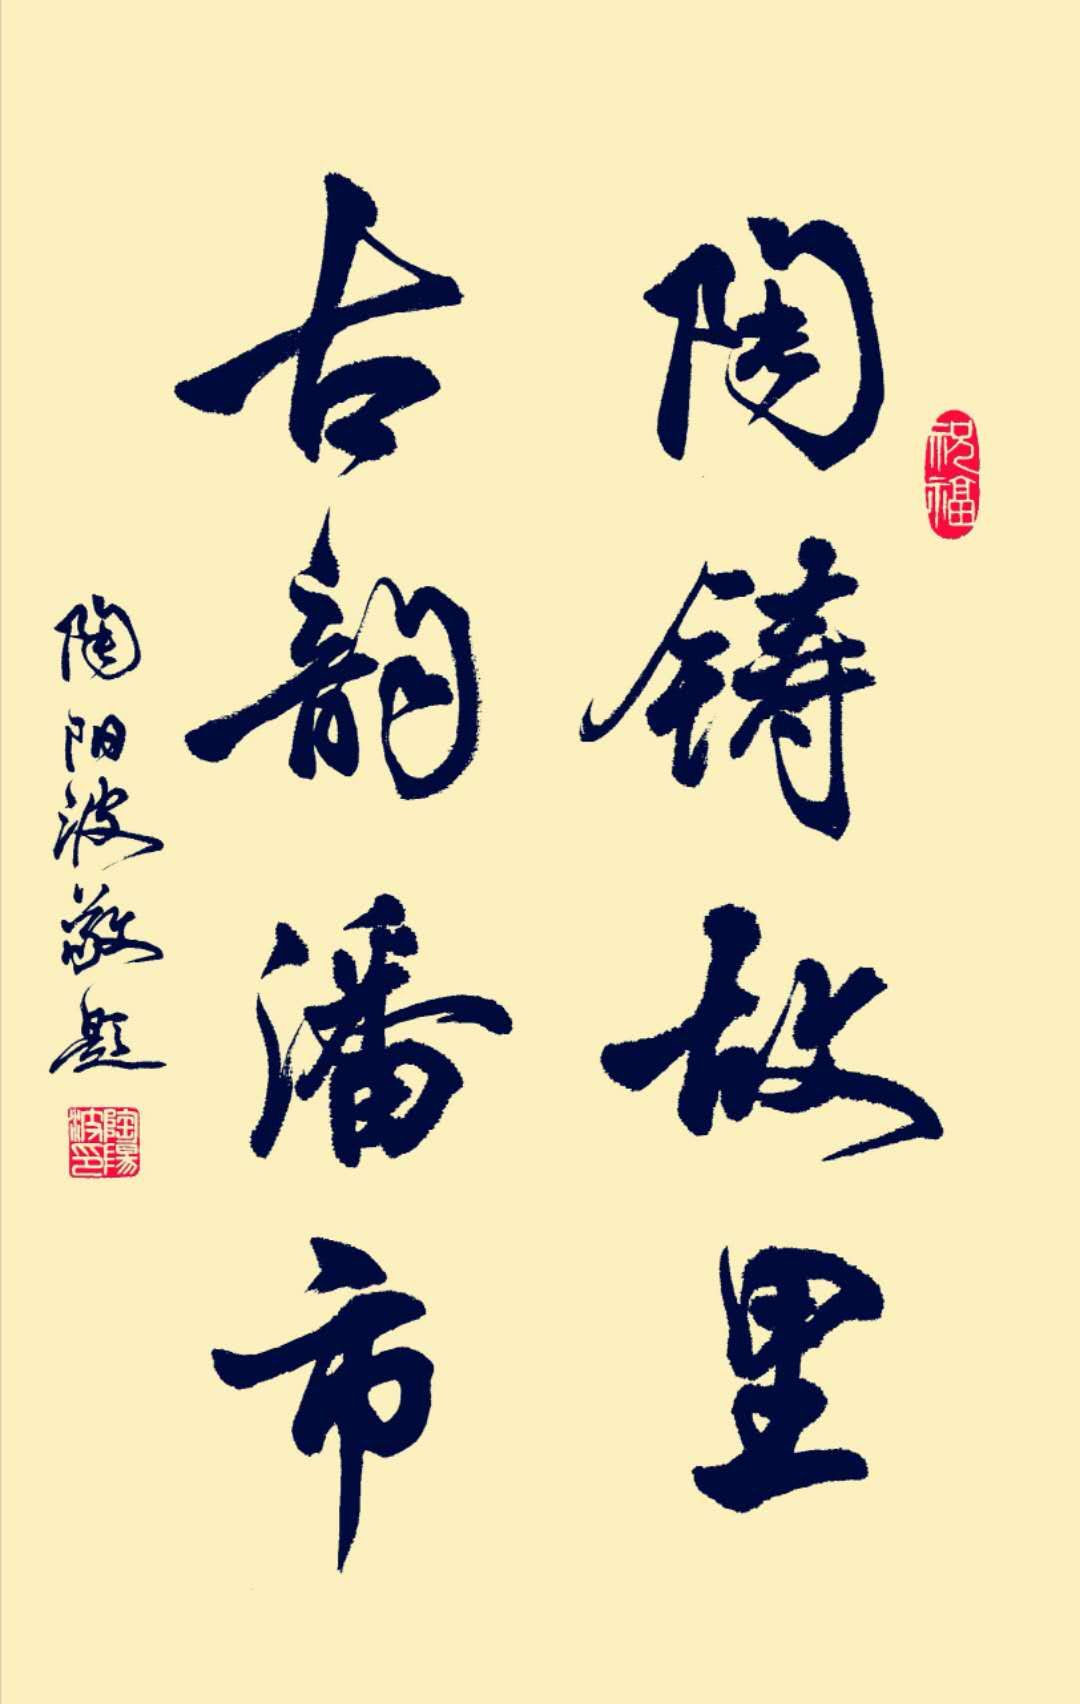 祝福
陶铸故里
古韵潘市
陶阳波敬题
陶陽波印